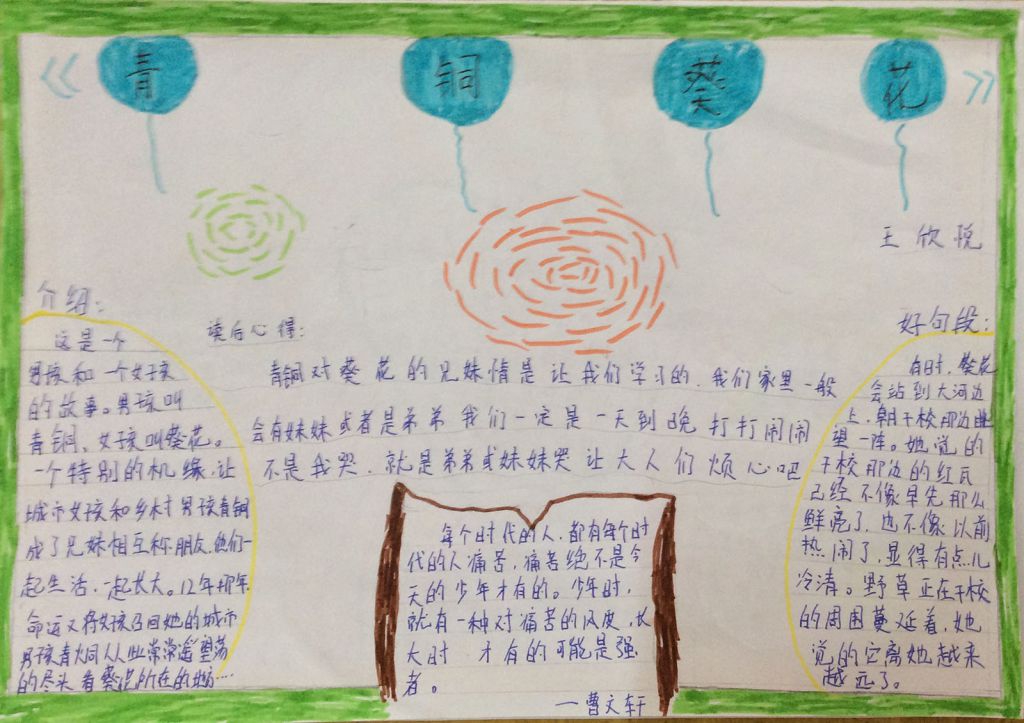 《青铜葵花》
王欣悦
介绍:
这是一个
男孩和一个女孩
的故事。男孩叫
青铜、女孩叫葵花。
一个特别的机缘、让
城市女孩和乡村男孩青铜
成了兄妹相互称朋友.他们一
起生活,一起长大。12年那年
命运又将女孩召回她的城市
男孩青铜从此常常遥望荡
的尽头着葵花所在的
读后心得:
青铜对葵花的兄妹情是让我们学习的.我们家里一般
会有妹妹或者是弟弟我们一定是一天到晚打打闹闹
不是我哭.就是弟弟或妹妹哭让大人们烦心吧
每个时代的人.都有每个时
代的人痛苦,痛苦绝不是今
天的少年才有的。少年时,
就有一种对痛苦的风度,长
大时 才有的可能是强
者。
—曹文轩
好句段:
有时,葵花
会站到大河边
上,朝干校那边眺
望一阵。她觉的
干校那边的红瓦
已经不像早先那么
鲜亮了,也不像以前
热闹了,显得有点儿
冷清。野草正在干校
的周围蔓延着,她
觉的它离她越来
越远了。